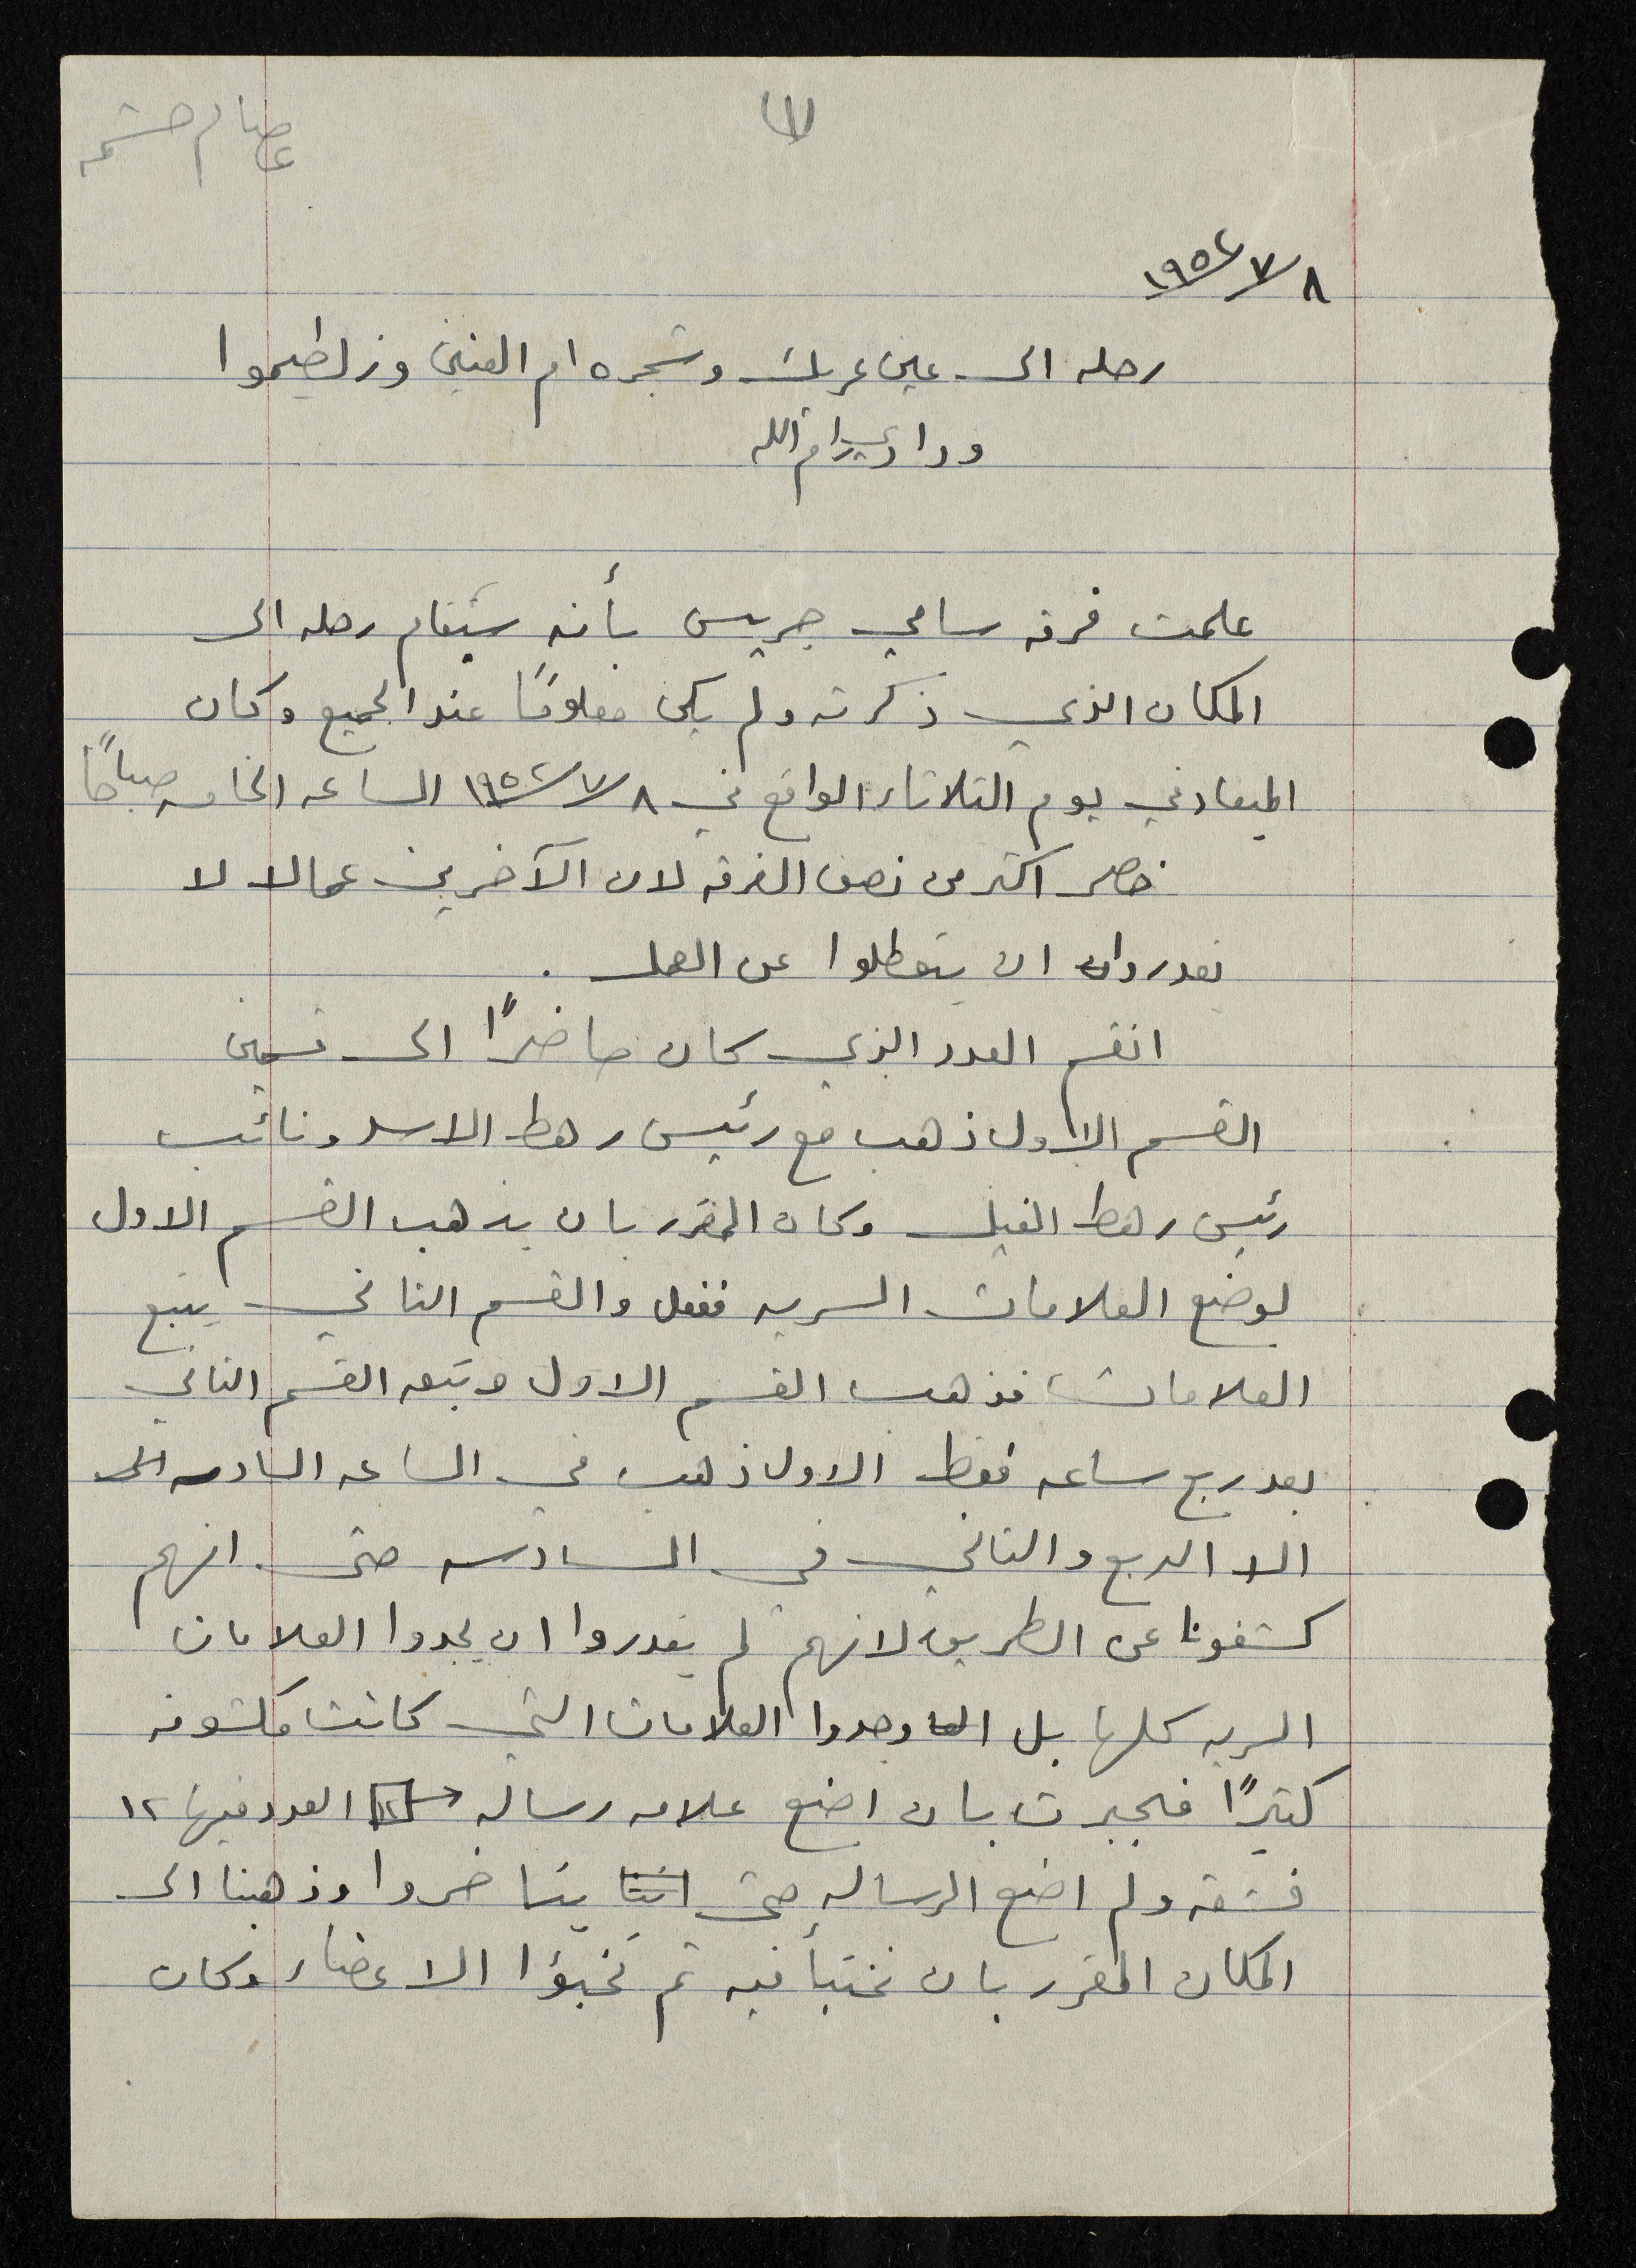 (١)
عصام حشمه
١٩٥٢/٧/٨
رحله الى عين عريك وشجره ام العنين وزلطيموا
ووادي رام الله
علمت فرقه سامي جريس بأنه ستقام رحله الى
المكان الذي ذكرته ولم يكن معلومًا عند الجميع وكان
الميعاد في يوم الثلاثاء الواقع في ١٩٥٢/٧/٨ الساعه الخامسه صباحًا
فحضر اكثر من نصف الفرقه لان الآخرين عمالا لا
يقدروان ان يتعطلوا عن العمل .
انقسم العدد الذي كان حاضرًا الى قسمين
القسم الاول ذهب مع رئيس رهط الاسد ونائب
رئيس رهط الفيل وكان المقرر بان يذهب القسم الاول
لوضع العلامات السريه ففعل والقسم الثاني يتبع
العلامات فذهب القسم الاول وتبعه القسم الثاني
بعد ربع ساعه فقط الاول ذهب في الساعه السادسه
الا الربع والثاني في السادسه حتى انهم
كشفونا عن الطريق لانهم لم يقدروا ان يجدوا العلامات
السريه كلها بل وجدوا العلامات التي كانت مكشوفه
كثيرًا فجبرت بان اضع علامه رساله ١٢ العدد فيها ١٢
فشقه ولم اضع الرساله حتى يتاخروا وذهبنا الى
المكان المقرر بان نختبأ فيه ثم تخبؤا الاعضاء وكان